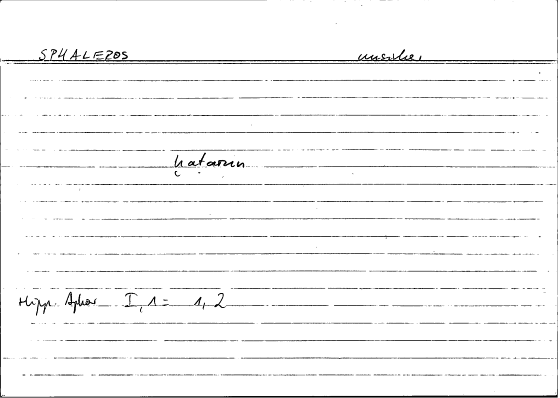 SPHALEROS unsicher
ḫaṭarun
Hipp. Aphor. I, 1 = 1, 2